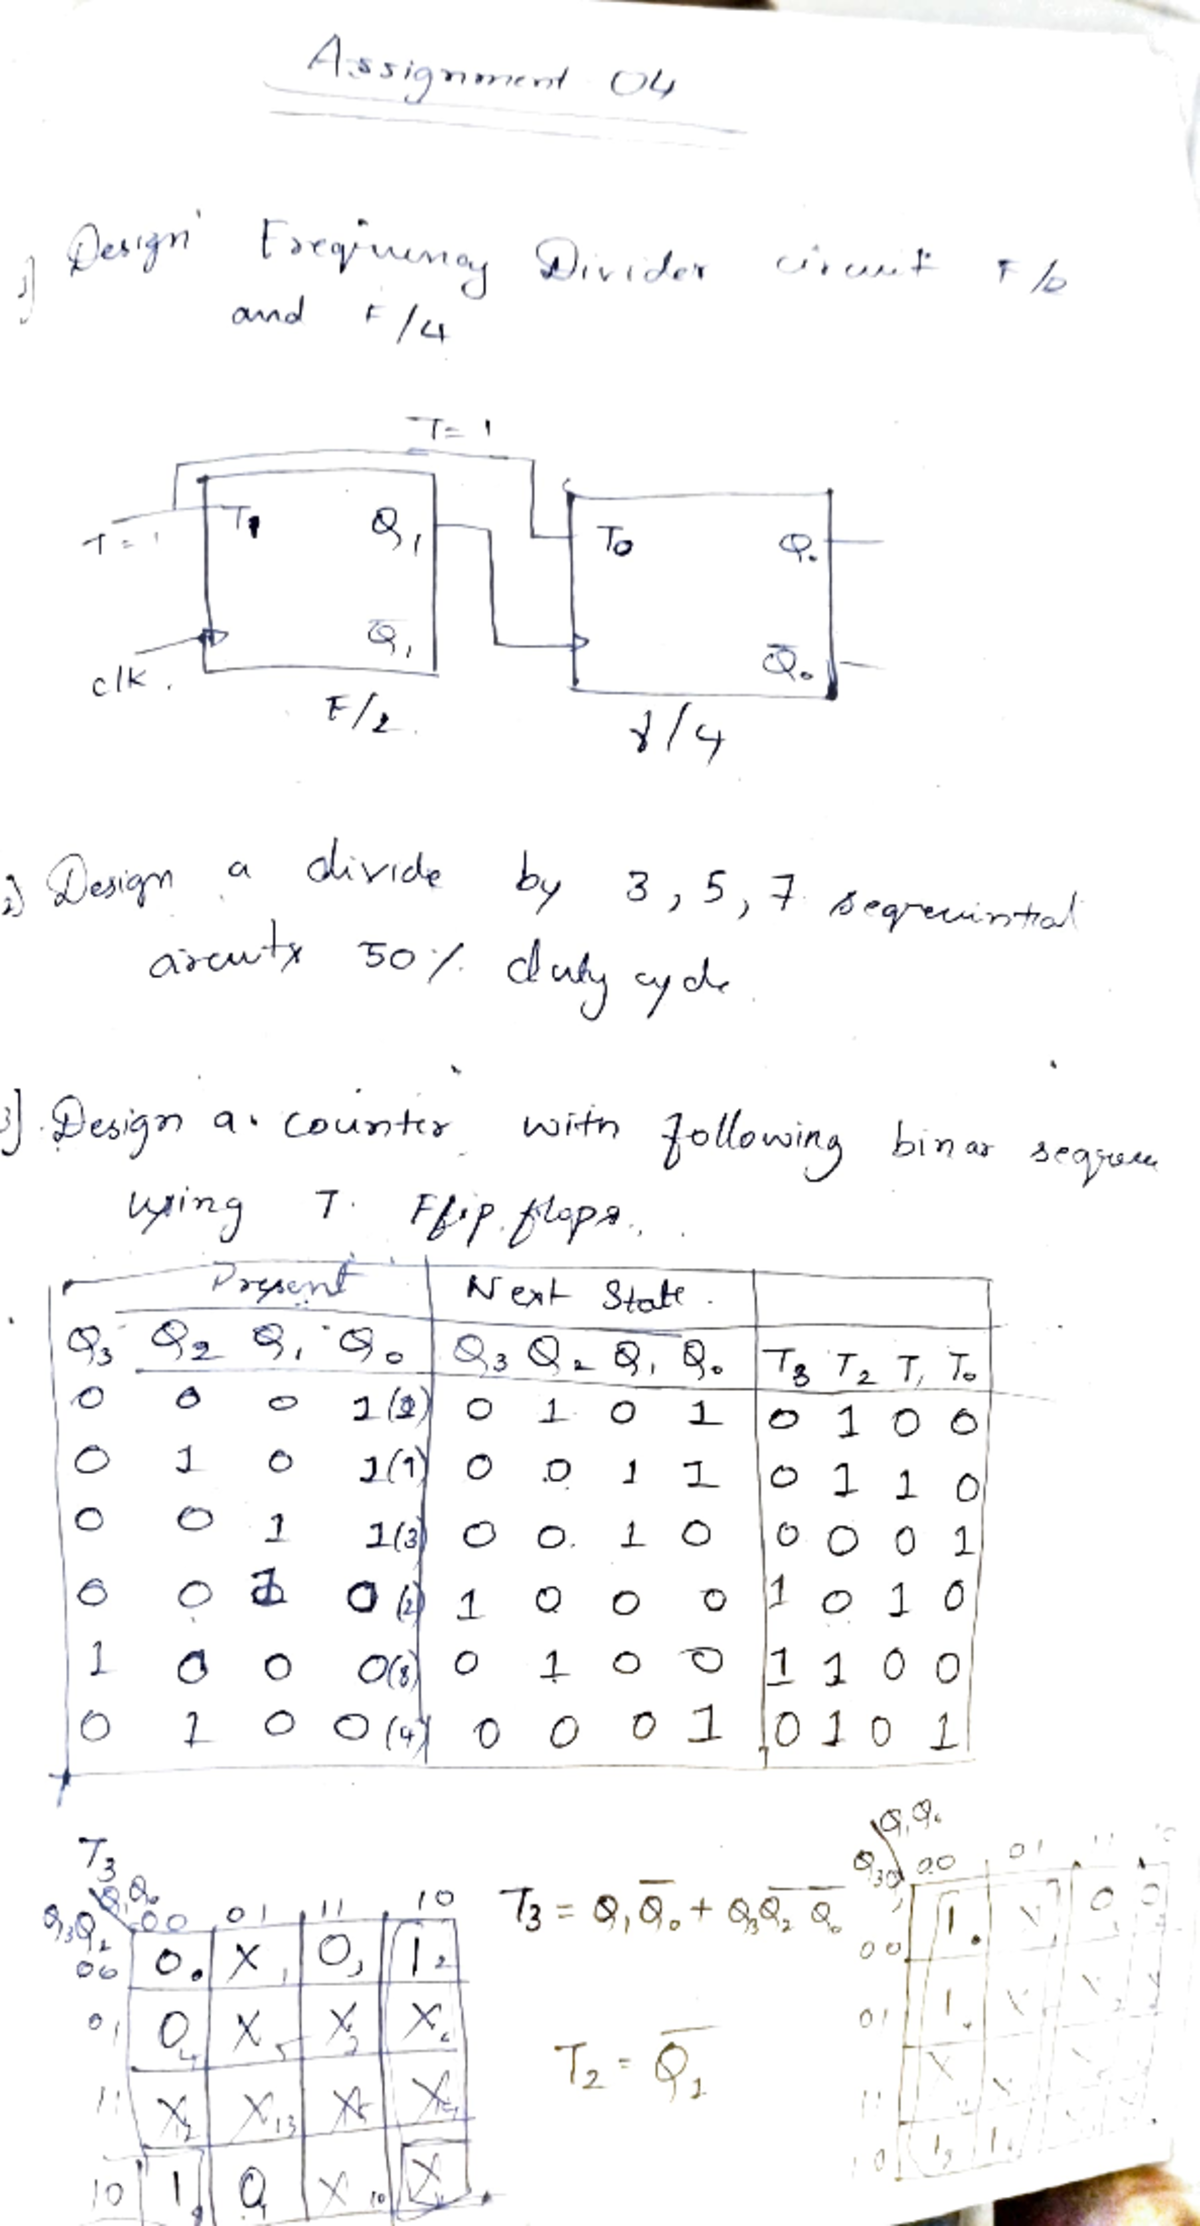 Assignment 04
1) Design Freqiuenay Divider circuit F/2
and F/4
T= 1
T = 1
T1 Q1
T0 Q0
Q̅1
Q̅0
clk.
F/2.
f/4
2) Design a divide by 3, 5, 7 seqreuintial
circuits 50% duty cycle.
3] Design a counter with following binar
using T. Fflip flops.
Present Next State.
Q3 Q2 Q1 Q0 Q3 Q2 Q1 Q0 T3 T2 T1 T0
0 0 0 1 0 1 0 1 0 1 0 0
0 1 0 1 0 0 1 1 0 1 1 0
0 0 1 1(3) 0 0. 1 0 0 0 0 1
0 0 1 0 (2) 1 0 0 0 1 0 1 0
1 0 0 0(8) 0 1 0 0 1 1 0 0
0 1 0 0 (4) 0 0 0 1 0 1 0 1
T3
Q1Q0
Q3Q2 00 01 11 10
00 0 X 0 1
01 0 X X X
11 X X X X
10 1 0 X X
T3 = Q1Q̅0 + Q3Q̅2Q̅0
T2 = Q̅1
Q1Q0
00 01 11
00 1 0 0
01 1
11 X
10 1 1